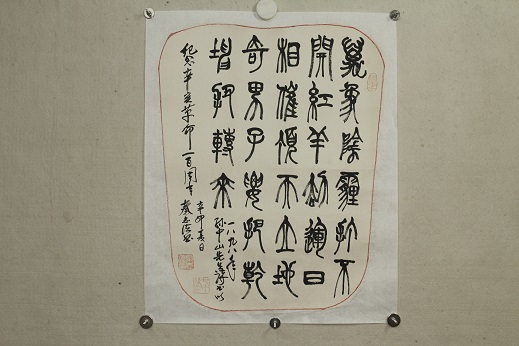 萬象陰霾打不
開紅羊劫運日
相催頂天立地
奇男子要把乾
坤扭轉來
一八九八年
孫中山先生詩以
紀念辛亥革命一百周年
辛卯日